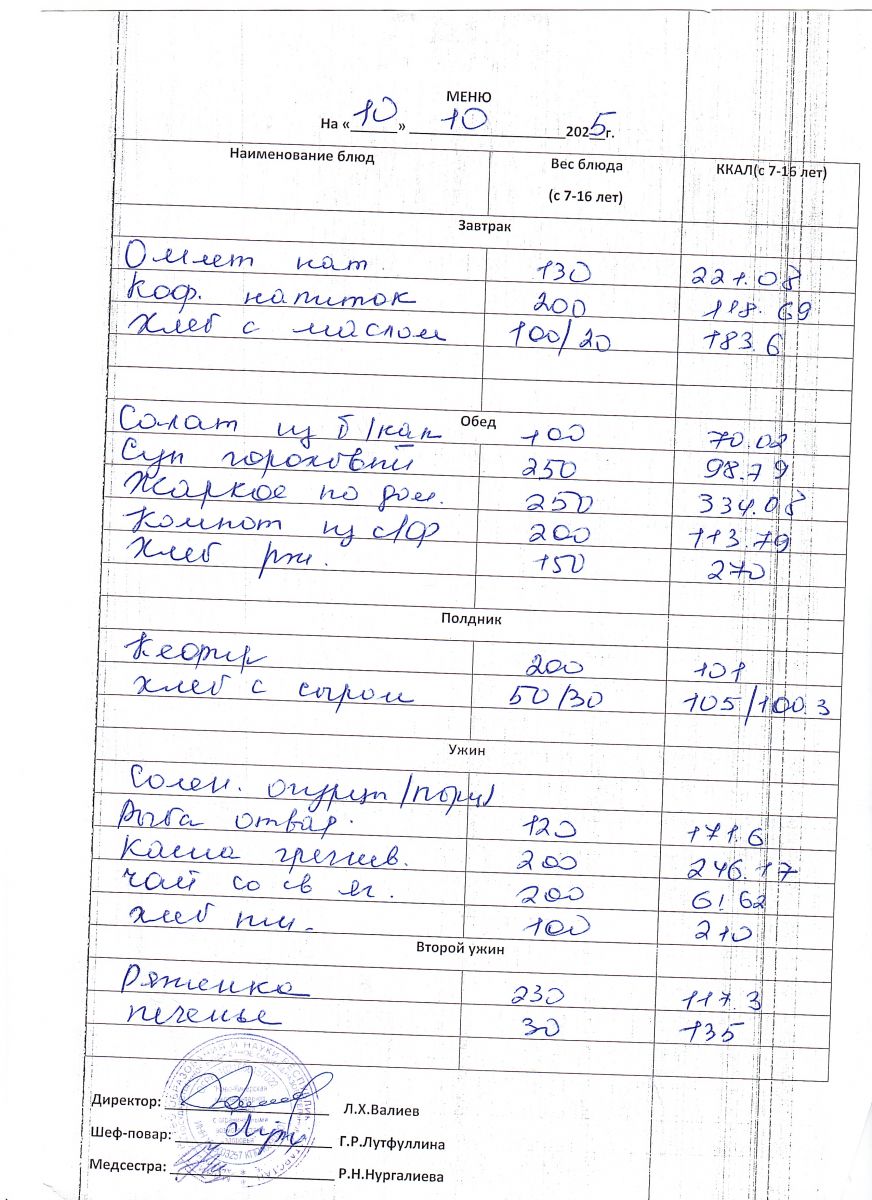 МЕНЮ
На «10» 10 2025г.
Наименование блюд Вес блюда (с 7-16 лет) ККАЛ(с 7-16 лет)
Завтрак
Омлет нат. 130 221.08
Коф. напиток 200 118.69
Хлеб с маслом 100/20 183.6
Обед
Солат из б/кап 100 70.02
Суп гороховый 250 98.79
Жаркое по дом. 250 334.08
Компот из с/ф 200 113.79
Хлеб рж. 150 270
Полдник
Кефир 200 101
Хлеб с сыром 50/30 105/100.3
Ужин
Солен. огурцы/порц
Рыба отвар. 120 171.6
Каша гречнев. 200 246.17
Чай со св яг. 200 61.62
Хлеб пш. 100 210
Второй ужин
Ряженка 230 117.3
печенье 30 135
Директор: Л.Х.Валиев
Шеф-повар: Г.Р.Лутфуллина
Медсестра: Р.Н.Нургалиева